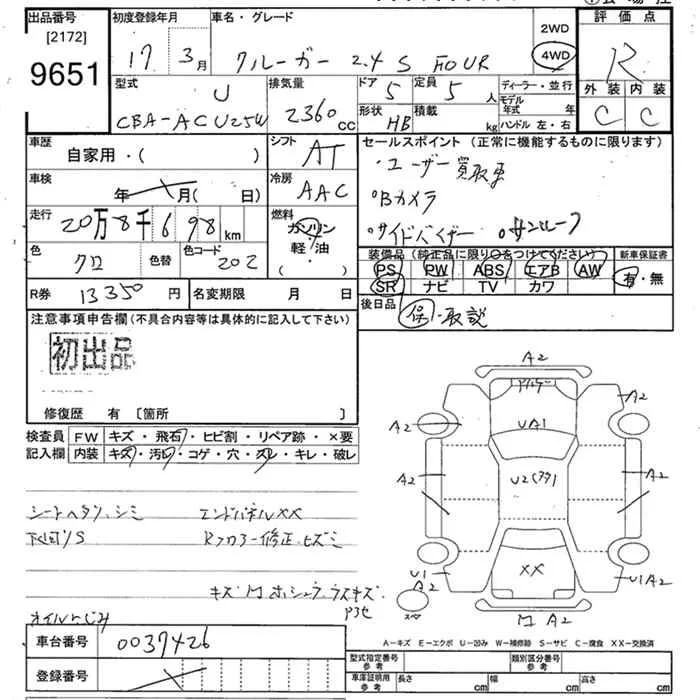 出品番号
[2172]
9651
初度登録年月
17年 3月
車名・グレード
クルーガー 2.4 S FOUR
2WD
4WD
評価点
R
外装 内装
C C
型式
U
CBA-ACU25W
排気量
2360 cc
ドア 5
形状 HB
定員 5 人
積載 kg
ディーラー・並行
モデル年式 年
ハンドル 左・右
車歴
自家用・( )
シフト
AT
車検
年 月( 日)
冷房
AAC
走行
20万8千698km
燃料
ガソリン
軽・油
・( )
色
クロ
色替
色コード
202
R券 13350円
名変期限 月 日
セールスポイント (正常に機能するものに限ります)
・ユーザー買取車
・Bカメラ
・サイドバイザー ・サンルーフ
装備品 (純正品に限り○をつけてください)
PS PW ABS エアB AW
SR ナビ TV カワ
新車保証書
有・無
後日品
保・取説
注意事項申告欄(不具合内容等は具体的に記入して下さい)
初出品
修復歴 有 〔箇所 〕
検査員記入欄
FW キズ・飛石・ヒビ割・リペア跡・×要
内装 キズ・汚れ・コゲ・穴・スレ・キレ・破レ
シートヘタリ、シミ エンドパネルXX
下回リS Rフロアー修正、ヒズミ
オイルにじみ
車台番号 0037426
登録番号
A2
A2
A2
UA1
A2
A2
U2
XX
U1
A2
U1A2
スペア
A2
A-キズ E-エクボ U-凹み W-補修跡 S-サビ C-腐食 XX-交換済
型式指定番号 参考
類別区分番号 参考
車庫証明用 参考
長さ cm 幅 cm 高さ cm